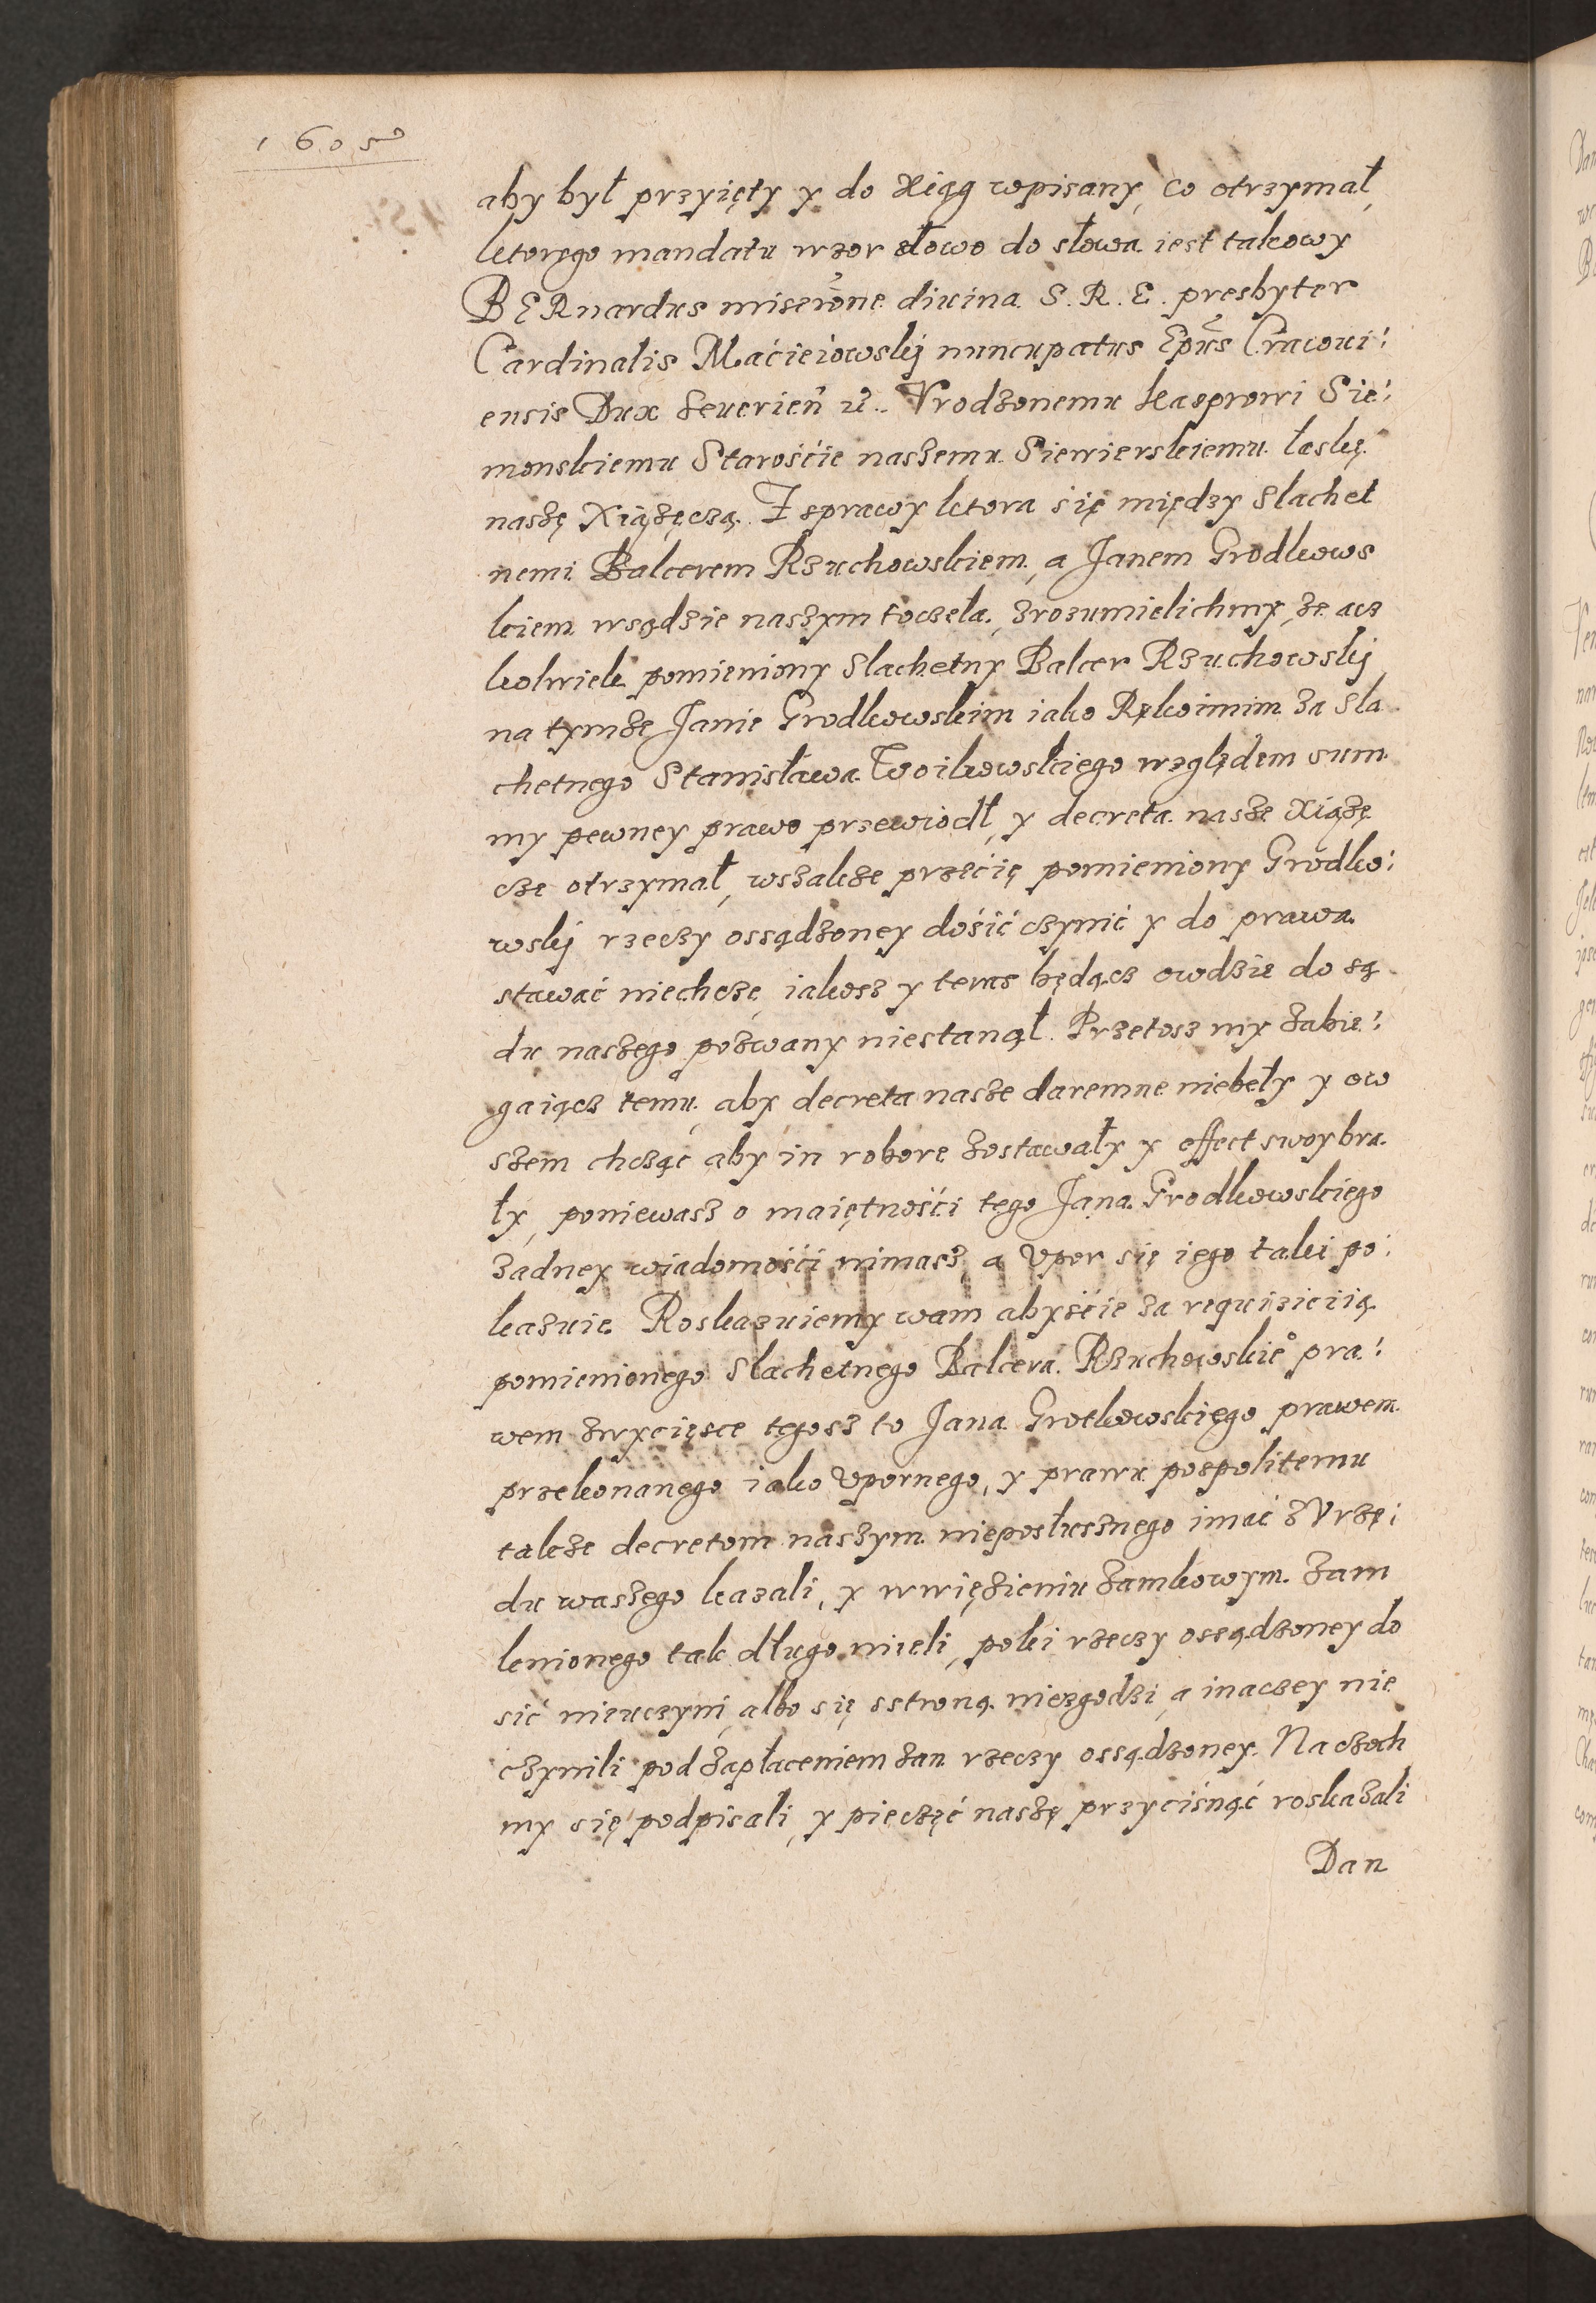 1605
aby był przyięty y do Xiąg wpisany, co otrzymał,
ktorego mandatu wzor słowo do słowa iest takowy
BERnardus miserõne diuina S. R. E. presbyter
Cardinalis Maćieiowskj nuncupatus Ep̃us Cracoui:
ensis Dux Seuerień etc. Vrodzonemu Kasprowi Sie:
monskiemu Starośćie naszemu Siewierskiemu łaskę
naszę Xiążęczą. Z sprawy ktora się między Slachet
nemi Balcerem Rzuchowskiem, a Janem Grodkows
kiem wsądzie naszym toczeła, zrozumielichmy, że acz
kolwiek pomieniony Slachetny Balcer Rzuchowskj
na tymże Janie Grodkowskim iako Rękoimim za Sla
chetnego Stanisława Woikowskiego względem sum
my pewney prawo przewiodł, y decreta nasze Xiążę
cze otrzymał, wszakże przećię pomieniony Grodko:
wskj rzeczy ossądzoney dośić czynić y do prawa
stawać niechcze, iakosz y teras będącz owdzie do są
du naszego pozwany niestanął. Przetosz my zabie:
gaiącz temu, aby decreta nasze daremne niebeły y ow
szem chcząc aby in robore zostawały y effect swoy bra
ły, poniewasz o maiętnośći tego Jana Grodkowskiego
zadney wiadomośći nimasz, a Vpor się iego taki po:
kazuie. Roskazuiemy wam abyśćie za requiziciią
pomienionego Slachetnego Balcera Rzuchowskieº pra:
wem zwycięsce tegosz to Jana Grotkowskiego prawem
przekonanego iako Vpornego, y prawu pospolitemu
także decretom naszym nieposłusznego imać z Vrzę:
du waszego kazali, y wwięzieniu zamkowym zam
knionego tak długo mieli, poki rzeczy osządzoney do
sić nieuczyni, albo się sstroną niezgodzi, a inaczey nie
czynili pod zapłaceniem zan rzeczy ossądzoney. Na czoch
my się podpisali, y pieczęć naszę przyciśnąć roskazali
Dan